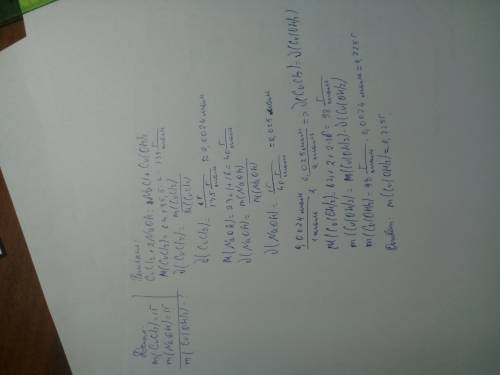 Дано:
m(CuCl₂)=1г
m(NaOH)=1г
m(Cu(OH)₂)=?
Решение:
CuCl₂+2NaOH=2NaCl+Cu(OH)₂
M(CuCl₂)= =135 г/моль
∂(CuCl₂)= m(CuCl₂)/M(CuCl₂)
∂(CuCl₂)= 1г/135 г/моль ≈0,0074 моль
M(NaOH)=23+1+16=40 г/моль
∂(NaOH)= m(NaOH)/M(NaOH)
∂(NaOH)= 1г/40 г/моль =0,025 моль
0,0074 моль/1 моль 0,025 моль/2 моль => ∂(CuCl₂)=∂(Cu(OH)₂)
M(Cu(OH)₂)=64+2+2·16=98 г/моль
m(Cu(OH)₂)=M(Cu(OH)₂)·∂(Cu(OH)₂)
m(Cu(OH)₂)=98 г/моль·0,0074 моль=0,725г
Ответ: m(Cu(OH)₂)=0,725г